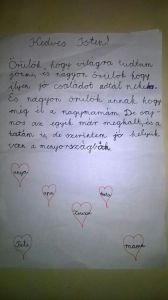 Kedves Isten!
Örülök, hogy világra tudtam
jönni, és nagyon örülök hogy
ilyen jó családot adtál nekem.
És nagyon örülök annak hogy
még él a nagymamám. De saj-
nos az egyik már meghalt, és a
tatám is, de szerintem jó helyük
van a menyországban.
anya
apa
tata
Zsuzsi
Feli
mama